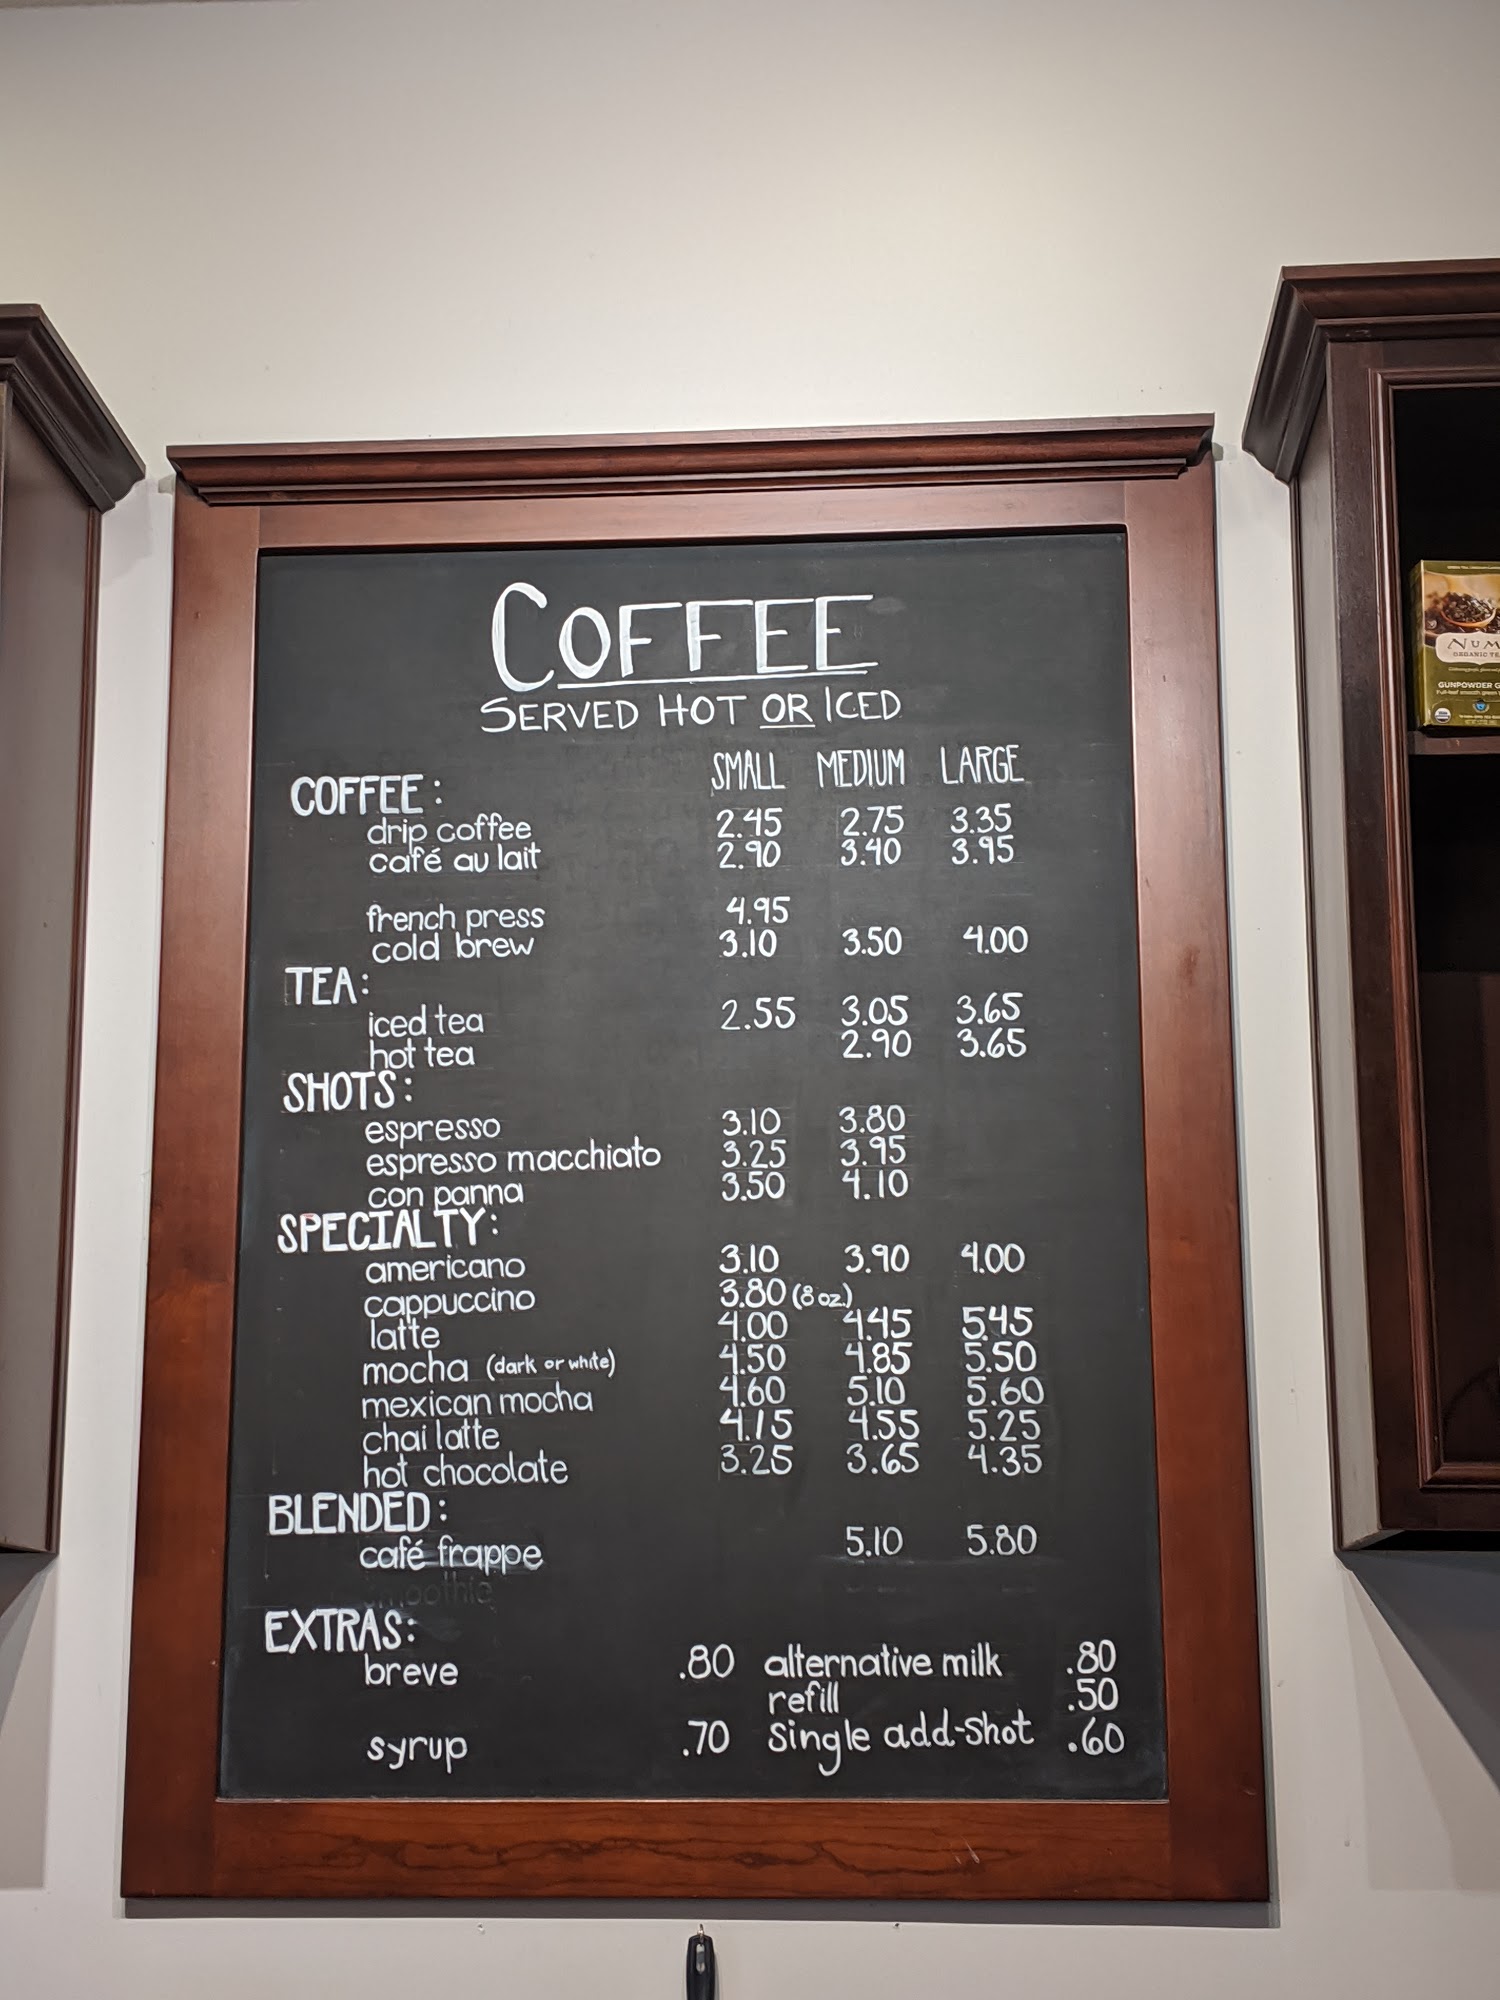 COFFEE
SERVED HOT OR ICED
SMALL MEDIUM LARGE
COFFEE:
drip coffee 2.45 2.75 3.35
café au lait 2.90 3.40 3.95
french press 4.95
cold brew 3.10 3.50 4.00
TEA:
iced tea 2.55 3.05 3.65
hot tea 2.90 3.65
SHOTS:
espresso 3.10 3.80
espresso macchiato 3.25 3.95
con panna 3.50 4.10
SPECIALTY:
americano 3.10 3.90 4.00
cappuccino 3.80 (8 oz.)
latte 4.00 4.45 5.45
mocha (dark or white) 4.50 4.85 5.50
mexican mocha 4.60 5.10 5.60
chai latte 4.15 4.55 5.25
hot chocolate 3.25 3.65 4.35
BLENDED:
café frappe 5.10 5.80
smoothie
EXTRAS:
breve .80 alternative milk .80
refill .50
syrup .70 single add-shot .60
NUM
ORGANIC TE
GUNPOWDER G